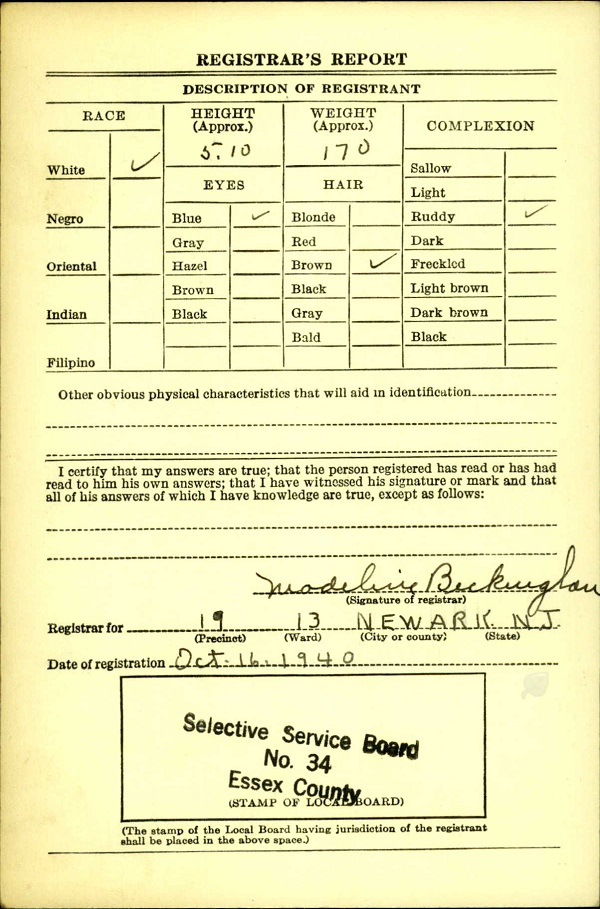 REGISTRAR'S REPORT
DESCRIPTION OF REGISTRANT
RACE
HEIGHT
(Approx.)
WEIGHT
(Approx.)
COMPLEXION
5.10
170
White ✓
Negro
Oriental
Indian
Filipino
EYES
Blue ✓
Gray
Hazel
Brown
Black
HAIR
Blonde
Red
Brown ✓
Black
Gray
Bald
Sallow
Light
Ruddy ✓
Dark
Freckled
Light brown
Dark brown
Black
Other obvious physical characteristics that will aid in identification
I certify that my answers are true; that the person registered has read or has had
read to him his own answers; that I have witnessed his signature or mark and that
all of his answers of which I have knowledge are true, except as follows:
Madeline
(Signature of registrar)
Registrar for 19 13 NEWARK N J.
(Precinct) (Ward) (City or county) (State)
Date of registration Oct. 16. 1940
Selective Service Board
No. 34
Essex County
(STAMP OF LOCAL BOARD)
(The stamp of the Local Board having jurisdiction of the registrant
shall be placed in the above space.)